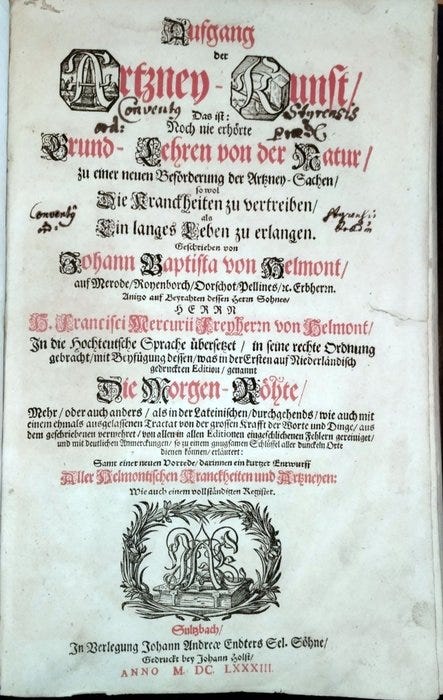 Aufgang
der
Artzney-Kunst/
Das ist:
Noch nie erhörte
Grund-Lehren von der Natur/
zu einer neuen Beförderung der Artzney-Sachen/
so wol
Die Kranckheiten zu vertreiben/
als
Ein langes Leben zu erlangen.
Geschrieben von
Johann Baptista von Helmont/
auf Merode/Royenborch/Oorschot/Pellines/ꝛc. Erbherrn.
Anitzo auf Beyrahten dessen Herrn Sohnes/
HERRN
H. Francisci Mercurii Freyherrn von Helmont/
In die Hochteutsche Sprache übersetzet/ in seine rechte Ordnung
gebracht/mit Beyfügung dessen/was in der Ersten auf Niederländisch
gedruckten Edition/ genannt
Die Morgen-Röhte/
Mehr/oder auch anders/ als in der Lateinischen/durchgehends/wie auch mit
einem ehmals ausgelassenen Tractat von der grossen Krafft der Worte und Dinge/ aus
dem geschriebenen vermehret/von allen in allen Editionen eingeschlichenen Fehlern gereiniget/
und mit deutlichen Anmerckungen/ so zu einem gnugsamen Schlüssel aller dunckeln Orte
dienen können/erläutert:
Samt einer neuen Vorrede/darinnen ein kurtzer Entwurff
Aller Helmontischen Kranckheiten und Artzneyen:
Wie auch einem vollständigen Register.
Sultzbach/
In Verlegung Johann Andreæ Endters Sel. Söhne/
Gedruckt bey Johann Holst/
ANNO M. DC. LXXXIII.